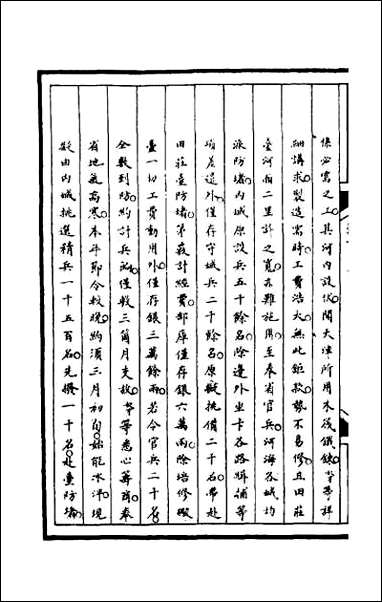 係必需之工其河內設伏聞天津所用木筏鐵錨等等詳
細講求製造需時工費浩大無此鉅款勢不易修且田莊
臺河面二里許之寬亦難施用至奉省官兵河海各城均
派防堵內城原設兵五千餘名除邊外坐卡各路緝捕等
項差遣外僅存守城兵二千餘名原擬挑備二千名帶赴
田莊臺防堵第核計經費部庫僅存銀六萬兩除培修礮
臺一切工費動用外僅存銀三萬餘兩若令官兵二千名
全數到防約計兵餉僅敷三箇月支放等等悉心籌商奉
省地氣高寒本年節令較晚約須三月初旬始能冰泮現
擬由內城挑選精兵一千五百名先撥一千名赴臺防堵